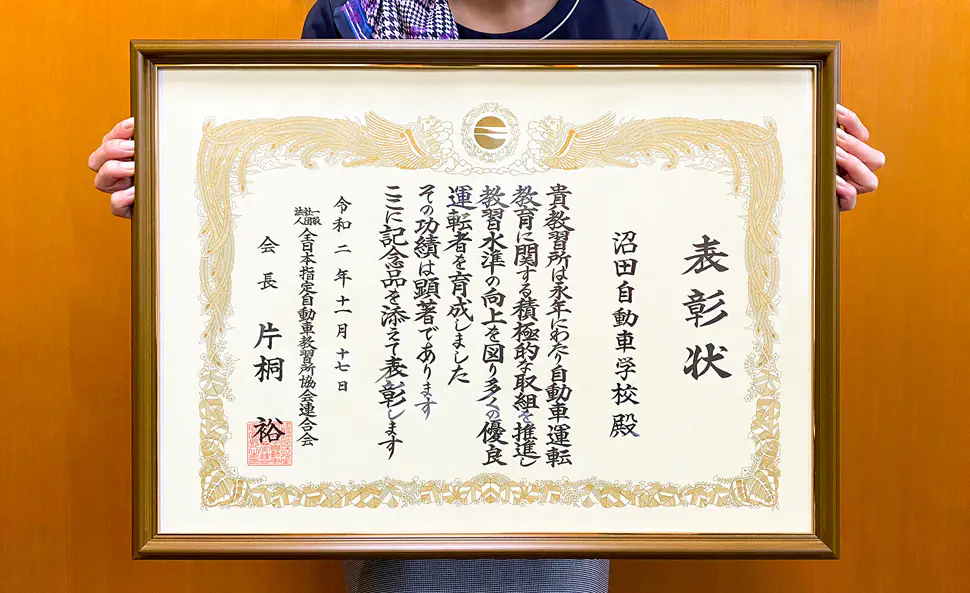 表彰状
沼田自動車学校殿
貴教習所は永年にわたり自動車運転
教育に関する積極的な取組を推進し
教習水準の向上を図り多くの優良
運転者を育成しました
その功績は顕著であります
ここに記念品を添えて表彰します
令和二年十一月十七日
一般社団法人全日本指定自動車教習所協会連合会
会長 片桐 裕